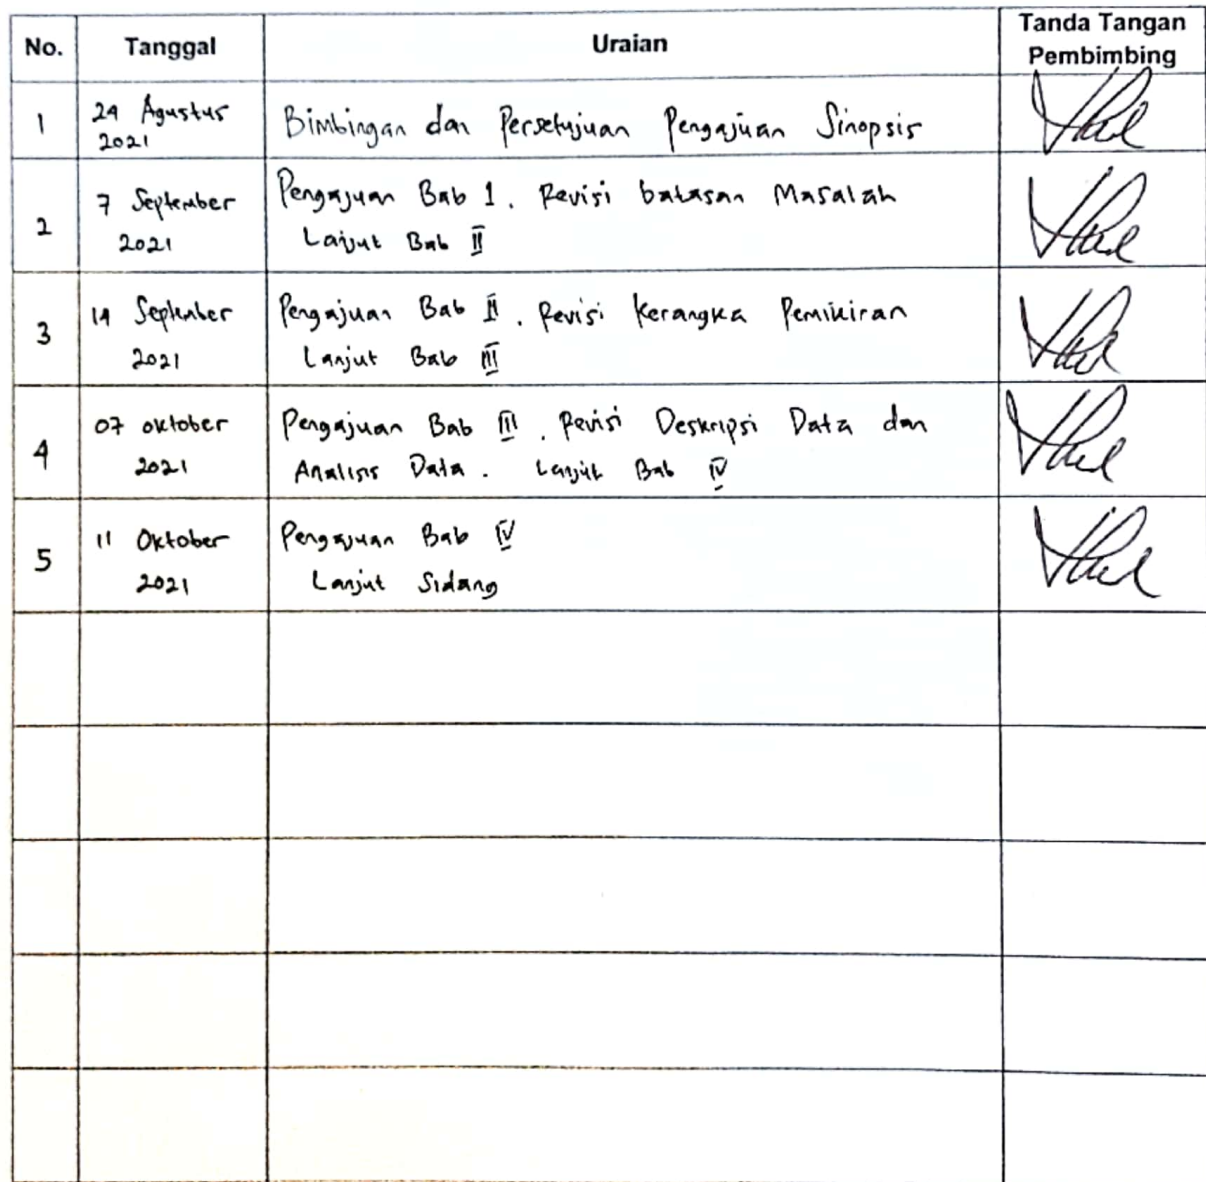 No. Tanggal Uraian Tanda Tangan
Pembimbing
1 24 Agustus
2021
Bimbingan dan Persetujuan Pengajuan Sinopsis
2 7 September
2021
Pengajuan Bab 1. Revisi batasan Masalah
Lanjut Bab II
3 14 September
2021
Pengajuan Bab II. Revisi Kerangka Pemikiran
Lanjut Bab III
4 07 oktober
2021
Pengajuan Bab III. Revisi Deskripsi Data dan
Analisis Data. Lanjut Bab IV
5 11 Oktober
2021
Pengajuan Bab IV
Lanjut Sidang